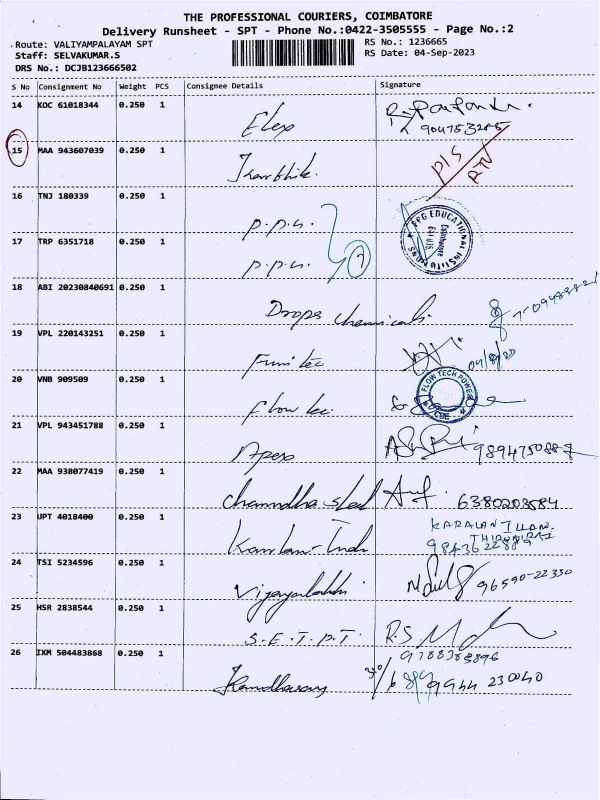 THE PROFESSIONAL COURIERS, COIMBATORE
Delivery Runsheet - SPT - Phone No.:0422-3505555 - Page No.:2
Route: VALIYAMPALAYAM SPT
RS No.: 1236665
Staff: SELVAKUMAR.S
RS Date: 04-Sep-2023
DRS No.: DCJB123666502
S No Consignment No Weight PCS Consignee Details Signature
14 KOC 61018344 0.250 1
Elex
15 MAA 943607039 0.250 1
P/S
RTN
16 TNJ 180339 0.250 1
P.P.G.
PPG EDUCATIONAL INSTITUTIONS
Coimbatore
641 035
17 TRP 6351718 0.250 1
P.P.G.
7
18 ABI 20230840691 0.250 1
Drops Chemicals.
19 VPL 220143251 0.250 1
Furni tec
20 VNB 909509 0.250 1
Flow tec.
FLOW TECH POWER
21 VPL 943451788 0.250 1
Apex
22 MAA 938077419 0.250 1
6380203584
23 UPT 4018400 0.250 1
24 TSI 5234596 0.250 1
Vijayalakshi
96590-22330
25 HSR 2838544 0.250 1
S.E.T.P.T.
R.S.
9788383896
26 IXM 504483868 0.250 1
9944 230040